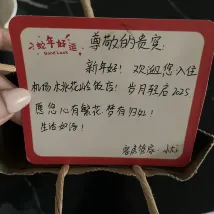 蛇年好运
Good Luck
尊敬的贵宾
新年好! 欢迎您入住
机场水北花山台饭店! 岁月轻启2025
愿您心有繁花 梦有归处!
生活如诗!
客房管家: